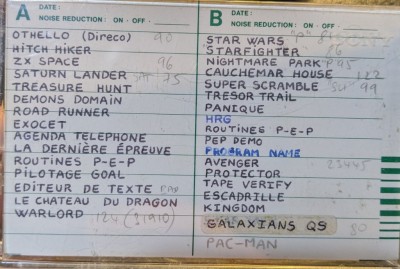 A DATE:
NOISE REDUCTION: ON · OFF
OTHELLO (Direco) 90
HITCH HIKER
ZX SPACE 96
SATURN LANDER 75
TREASURE HUNT
DEMONS DOMAIN
ROAD RUNNER
EXOCET
AGENDA TELEPHONE
LA DERNIÈRE ÉPREUVE
ROUTINES P-E-P
PILOTAGE GOAL
EDITEUR DE TEXTE
LE CHATEAU DU DRAGON
WARLORD
B DATE:
NOISE REDUCTION: ON · OFF
STAR WARS "P"
STARFIGHTER 86
NIGHTMARE PARK P95
CAUCHEMAR HOUSE 122
SUPER SCRAMBLE 99
TRESOR TRAIL
PANIQUE
HRG
ROUTINES P-E-P
PEP DEMO
PROGRAM NAME
AVENGER 23445
PROTECTOR
TAPE VERIFY
ESCADRILLE
KINGDOM
GALAXIANS QS 80
PAC-MAN